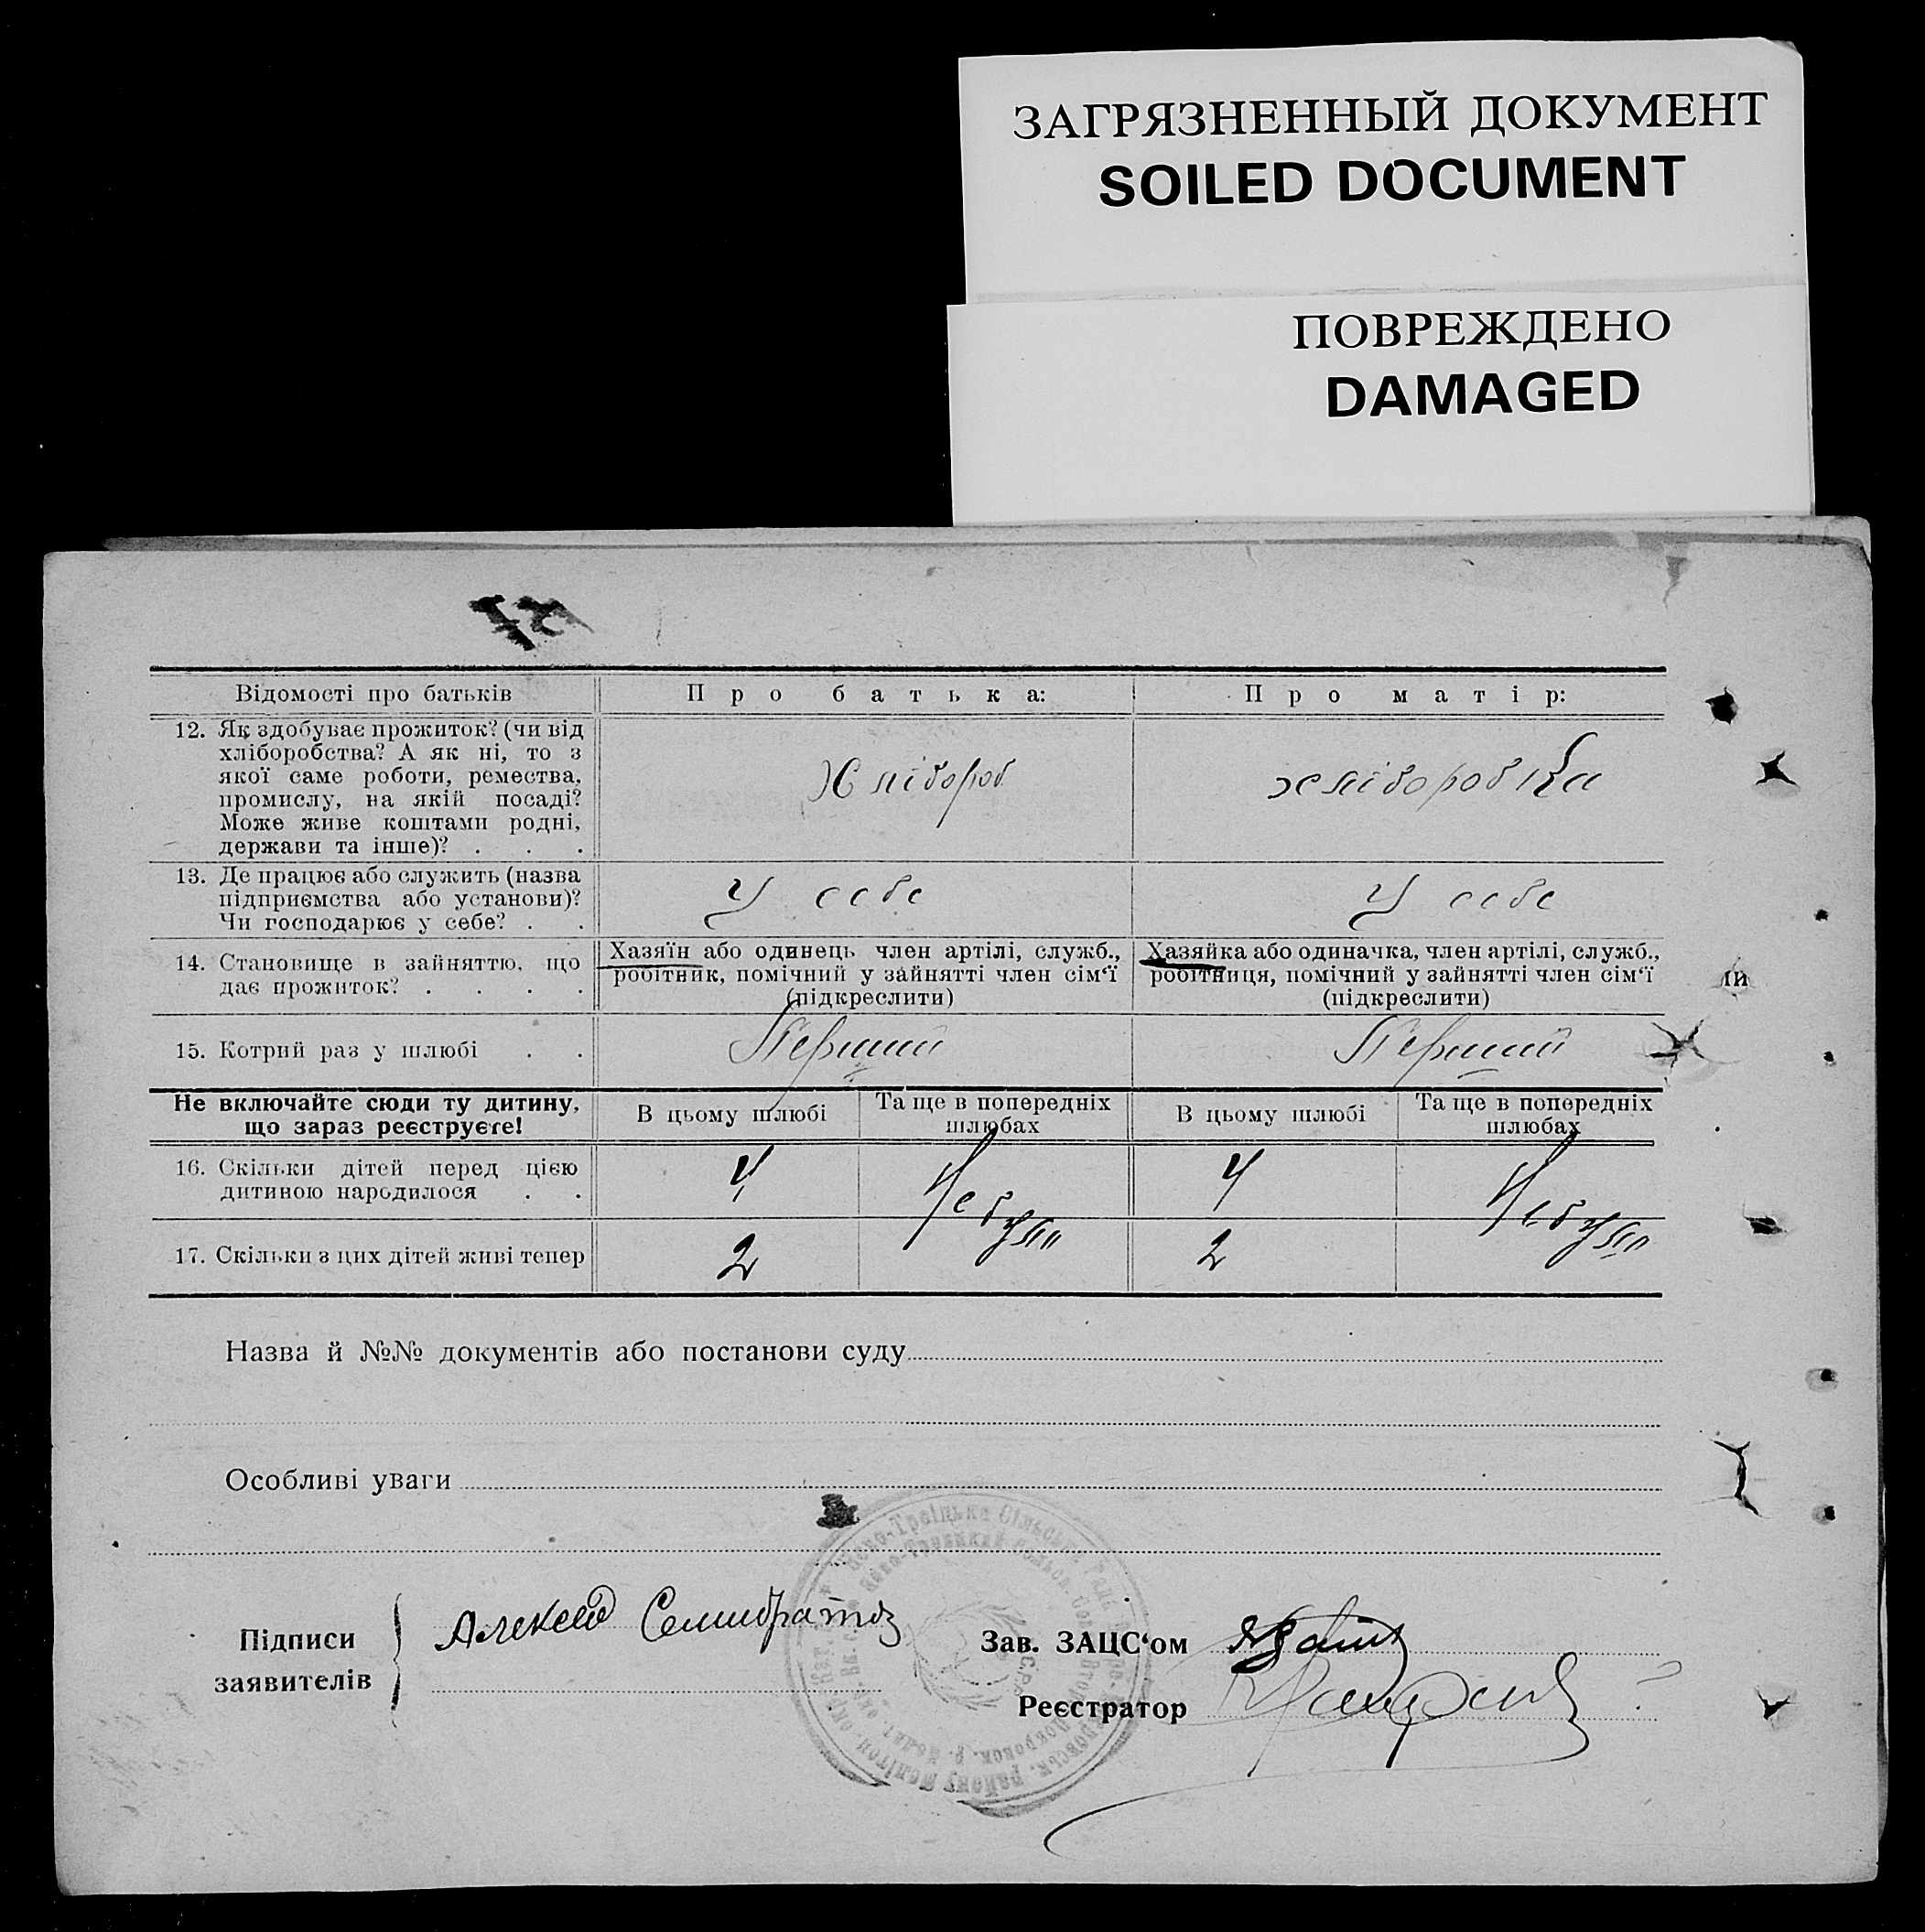 ЗАГРЯЗНЕННЫЙ ДОКУМЕНТ
SOILED DOCUMENT
ПОВРЕЖДЕНО
DAMAGED
Відомості про батьків
Про батька:
Про матір:
12. Як здобуває прожиток? (чи від
хліборобства? А як ні, то з
якої саме роботи, ремества,
промислу, на якій посаді?
Може живе коштами родні,
держави та інше)? . . .
Хлібороб
хліборобка
13. Де працює або служить (назва
підприємства або установи)?
Чи господарює у себе? . .
У себе
У себе
14. Становище в зайняттю, що
дає прожиток? . . . .
Хазяїн або одинець член артілі, служб.,
робітник, помічний у зайнятті член сім‘ї
(підкреслити)
Хазяйка або одиначка, член артілі, служб.,
робітниця, помічний у зайнятті член сім‘ї
(підкреслити)
15. Котрий раз у шлюбі . .
Перший
Перший
Не включайте сюди ту дитину,
що зараз реєструєте!
В цьому шлюбі
Та ще в попередніх
шлюбах
В цьому шлюбі
Та ще в попередніх
шлюбах
16. Скільки дітей перед цією
дитиною народилося . .
4
Не були
4
Не були
17. Скільки з цих дітей живі тепер
2
2
Назва й №№ документів або постанови суду
Особливі уваги
Підписи
заявителів
Алексей Семибратов
Зав. ЗАЦС‘ом
Реєстратор